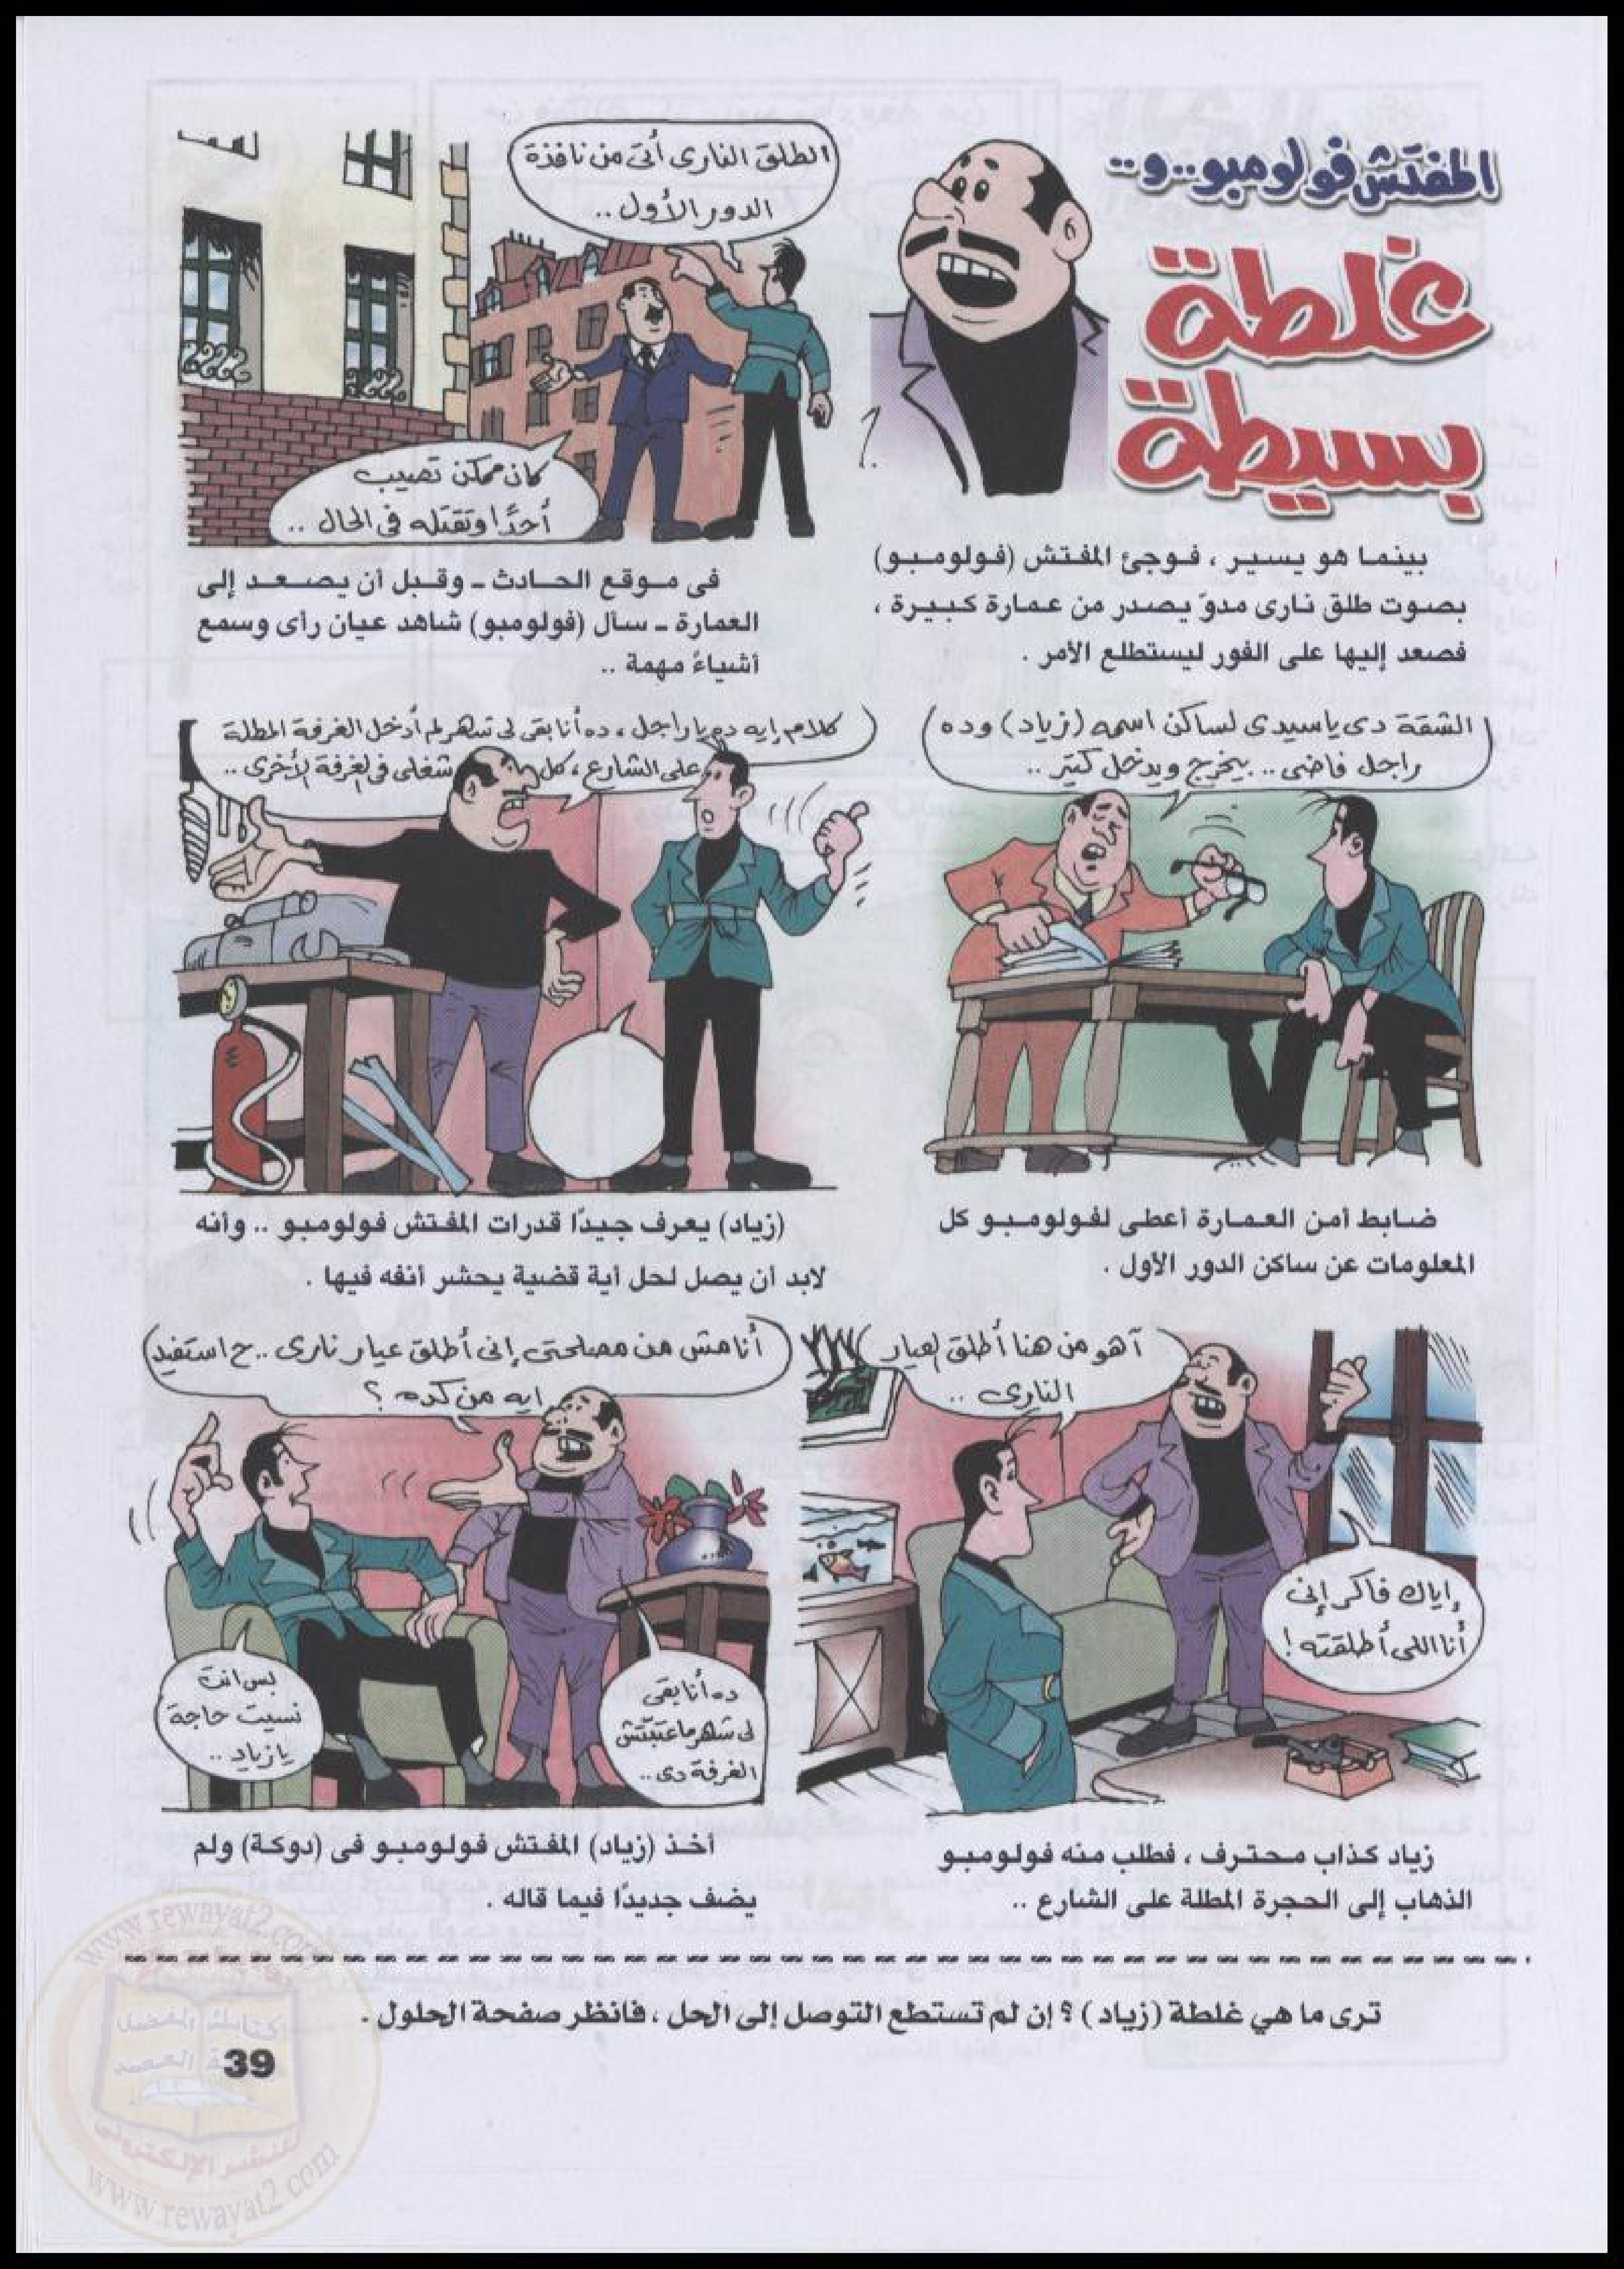 المفتش فولومبو..و..
غلطة
بسيطة
بينما هو يسير ، فوجئ المفتش (فولومبو)
بصوت طلق نارى مدوّ يصدر من عمارة كبيرة ،
فصعد إليها على الفور ليستطلع الأمر .
الطلق النارى أتى من نافذة
الدور الأول ..
كان ممكن تصيب
أحدًا وتقتله فى الحال ..
فى موقع الحادث ـ وقبل أن يصعد إلى
العمارة ـ سأل (فولومبو) شاهد عيان رأى وسمع
أشياءً مهمة ..
الشقة دى ياسيدى لساكن اسمه (زياد) وده
راجل فاضى .. بيخرج ويدخل كتير ..
ضابط أمن العمارة أعطى لفولومبو كل
المعلومات عن ساكن الدور الأول .
كلام إيه ده يا راجل ، ده أنا بقى لى شهر لم أدخل الغرفة المطلة
على الشارع ، كل شغلى فى الغرفة الأخرى ..
(زياد) يعرف جيدًا قدرات المفتش فولومبو .. وأنه
لابد أن يصل لحل أية قضية يحشر أنفه فيها .
آهو من هنا أطلق العيار
النارى ..
إياك فاكر إنى
أنا اللى أطلقته !
زياد كذاب محترف ، فطلب منه فولومبو
الذهاب إلى الحجرة المطلة على الشارع ..
أنا مش من مصلحتى إنى أطلق عيار نارى .. ح استفيد
ايه من كده ؟
ده أنا بقى
لى شهر ماعتبتش
الغرفة دى ..
بس انت
نسيت حاجة
يا زياد ..
أخذ (زياد) المفتش فولومبو فى (دوكة) ولم
يضف جديدًا فيما قاله .
ترى ما هي غلطة (زياد) ؟ إن لم تستطع التوصل إلى الحل ، فانظر صفحة الحلول .
39
www.rewayat2.com
www.rewayat2.com